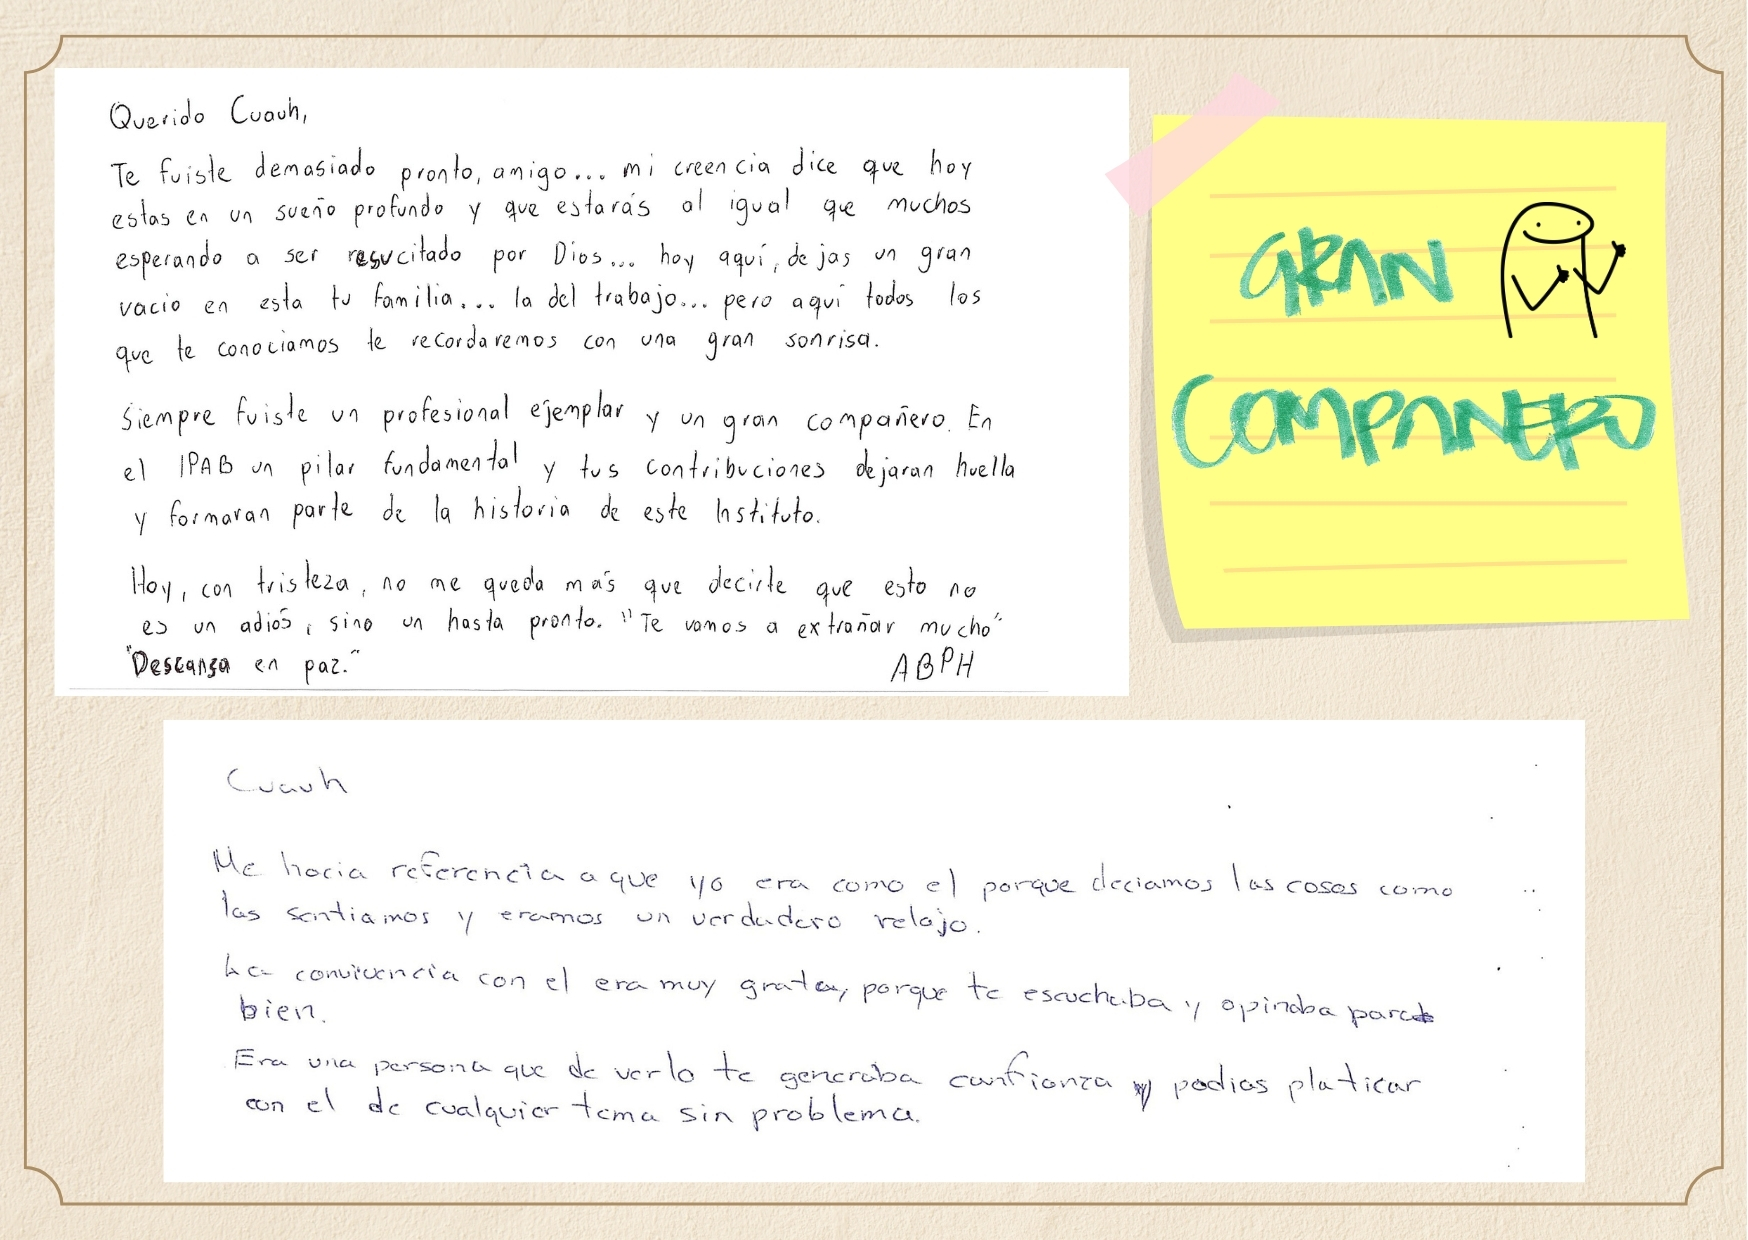 Querido Cuauh,
Te fuiste demasiado pronto, amigo... mi creencia dice que hoy
estas en un sueño profundo y que estarás al igual que muchos
esperando a ser resucitado por Dios... hoy aquí, dejas un gran
vacio en esta tu familia... la del trabajo... pero aquí todos los
que te conociamos te recordaremos con una gran sonrisa.
Siempre fuiste un profesional ejemplar y un gran compañero. En
el IPAB un pilar fundamental y tus contribuciones dejaran huella
y formaran parte de la historia de este Instituto.
Hoy, con tristeza, no me queda más que decirte que esto no
es un adiós, sino un hasta pronto. "Te vamos a extrañar mucho"
"Descansa en paz."
ABPH
GRAN
COMPANERO
Cuauh
Me hacia referencia a que yo era como el porque deciamos las cosas como
las sentiamos y eramos un verdadero relajo.
La convivencia con el era muy grata, porque te escuchaba y opinaba para
bien.
Era una persona que de verlo te generaba confianza y podias platicar
con el de cualquier tema sin problema.